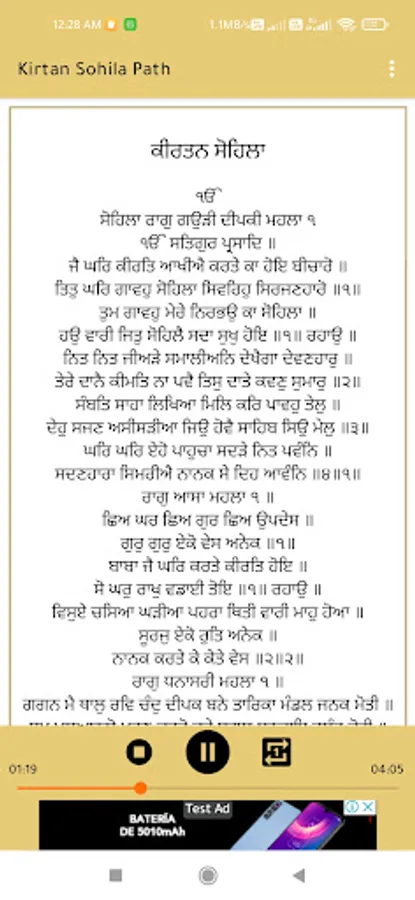 12:28 AM
1.1MB/S
Kirtan Sohila Path
ਕੀਰਤਨ ਸੋਹਿਲਾ
ੴ
ਸੋਹਿਲਾ ਰਾਗੁ ਗਉੜੀ ਦੀਪਕੀ ਮਹਲਾ ੧
ੴ ਸਤਿਗੁਰ ਪ੍ਰਸਾਦਿ ॥
ਜੈ ਘਰਿ ਕੀਰਤਿ ਆਖੀਐ ਕਰਤੇ ਕਾ ਹੋਇ ਬੀਚਾਰੋ ॥
ਤਿਤੁ ਘਰਿ ਗਾਵਹੁ ਸੋਹਿਲਾ ਸਿਵਰਿਹੁ ਸਿਰਜਣਹਾਰੋ ॥੧॥
ਤੁਮ ਗਾਵਹੁ ਮੇਰੇ ਨਿਰਭਉ ਕਾ ਸੋਹਿਲਾ ॥
ਹਉ ਵਾਰੀ ਜਿਤੁ ਸੋਹਿਲੈ ਸਦਾ ਸੁਖੁ ਹੋਇ ॥੧॥ ਰਹਾਉ ॥
ਨਿਤ ਨਿਤ ਜੀਅੜੇ ਸਮਾਲੀਅਨਿ ਦੇਖੈਗਾ ਦੇਵਣਹਾਰੁ ॥
ਤੇਰੇ ਦਾਨੈ ਕੀਮਤਿ ਨਾ ਪਵੈ ਤਿਸੁ ਦਾਤੇ ਕਵਣੁ ਸੁਮਾਰੁ ॥੨॥
ਸੰਬਤਿ ਸਾਹਾ ਲਿਖਿਆ ਮਿਲਿ ਕਰਿ ਪਾਵਹੁ ਤੇਲੁ ॥
ਦੇਹੁ ਸਜਣ ਅਸੀਸੜੀਆ ਜਿਉ ਹੋਵੈ ਸਾਹਿਬ ਸਿਉ ਮੇਲੁ ॥੩॥
ਘਰਿ ਘਰਿ ਏਹੋ ਪਾਹੁਚਾ ਸਦੜੇ ਨਿਤ ਪਵੰਨਿ ॥
ਸਦਣਹਾਰਾ ਸਿਮਰੀਐ ਨਾਨਕ ਸੇ ਦਿਹ ਆਵੰਨਿ ॥੪॥੧॥
ਰਾਗੁ ਆਸਾ ਮਹਲਾ ੧ ॥
ਛਿਅ ਘਰ ਛਿਅ ਗੁਰ ਛਿਅ ਉਪਦੇਸ ॥
ਗੁਰੁ ਗੁਰੁ ਏਕੋ ਵੇਸ ਅਨੇਕ ॥੧॥
ਬਾਬਾ ਜੈ ਘਰਿ ਕਰਤੇ ਕੀਰਤਿ ਹੋਇ ॥
ਸੋ ਘਰੁ ਰਾਖੁ ਵਡਾਈ ਤੋਇ ॥੧॥ ਰਹਾਉ ॥
ਵਿਸੁਏ ਚਸਿਆ ਘੜੀਆ ਪਹਰਾ ਥਿਤੀ ਵਾਰੀ ਮਾਹੁ ਹੋਆ ॥
ਸੂਰਜੁ ਏਕੋ ਰੁਤਿ ਅਨੇਕ ॥
ਨਾਨਕ ਕਰਤੇ ਕੇ ਕੇਤੇ ਵੇਸ ॥੨॥੨॥
ਰਾਗੁ ਧਨਾਸਰੀ ਮਹਲਾ ੧ ॥
ਗਗਨ ਮੈ ਥਾਲੁ ਰਵਿ ਚੰਦੁ ਦੀਪਕ ਬਨੇ ਤਾਰਿਕਾ ਮੰਡਲ ਜਨਕ ਮੋਤੀ ॥
01:19
04:05
Test Ad
BATERÍA
DE 5010mAh